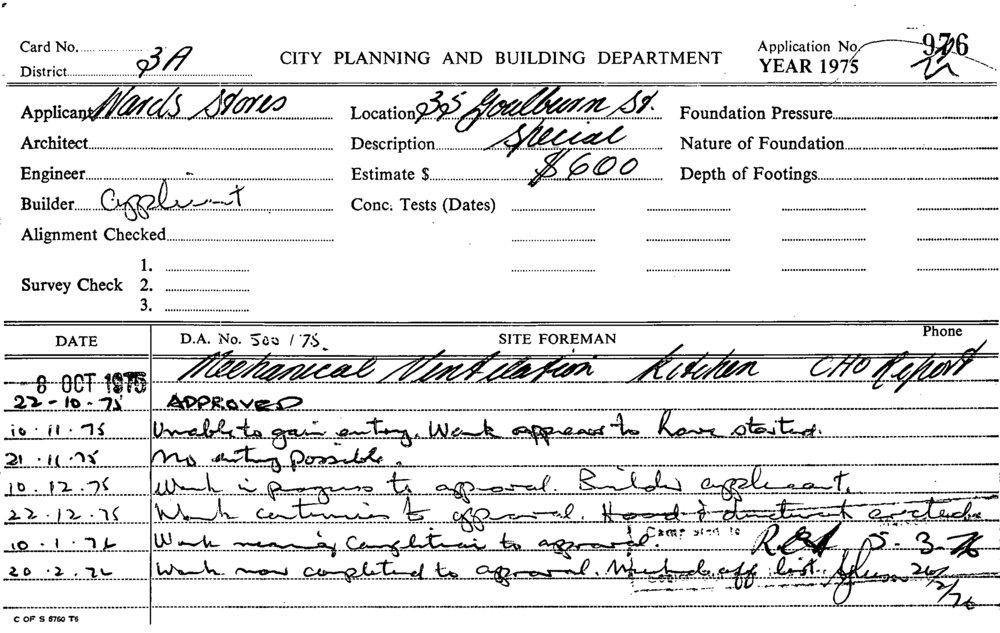 Card No.
District 3A
CITY PLANNING AND BUILDING DEPARTMENT
Application No. 976
YEAR 1975
Applicant Wards Stores
Location 335 Goulburn St.
Foundation Pressure
Architect
Description Special
Nature of Foundation
Engineer
Estimate $ $600
Depth of Footings
Builder Applicant
Conc. Tests (Dates)
Alignment Checked
1.
Survey Check 2.
3.
DATE D.A. No. 500/75. SITE FOREMAN Phone
8 OCT 1975 Mechanical Ventilation Kitchen CHO Report
22-10-75 APPROVED
10.11.75 Unable to gain entry. Work appears to have started.
21.11.75 No entry possible.
10.12.75 Work in progress to approval. Builder applicant.
22.12.75 Work continues to approval. Hood & ductwork erected
10.1.76 Work nearing completion to approval. 5-3-76
20.2.76 Work now completed to approval. list. 20/2/76
C OF S 5760 T6